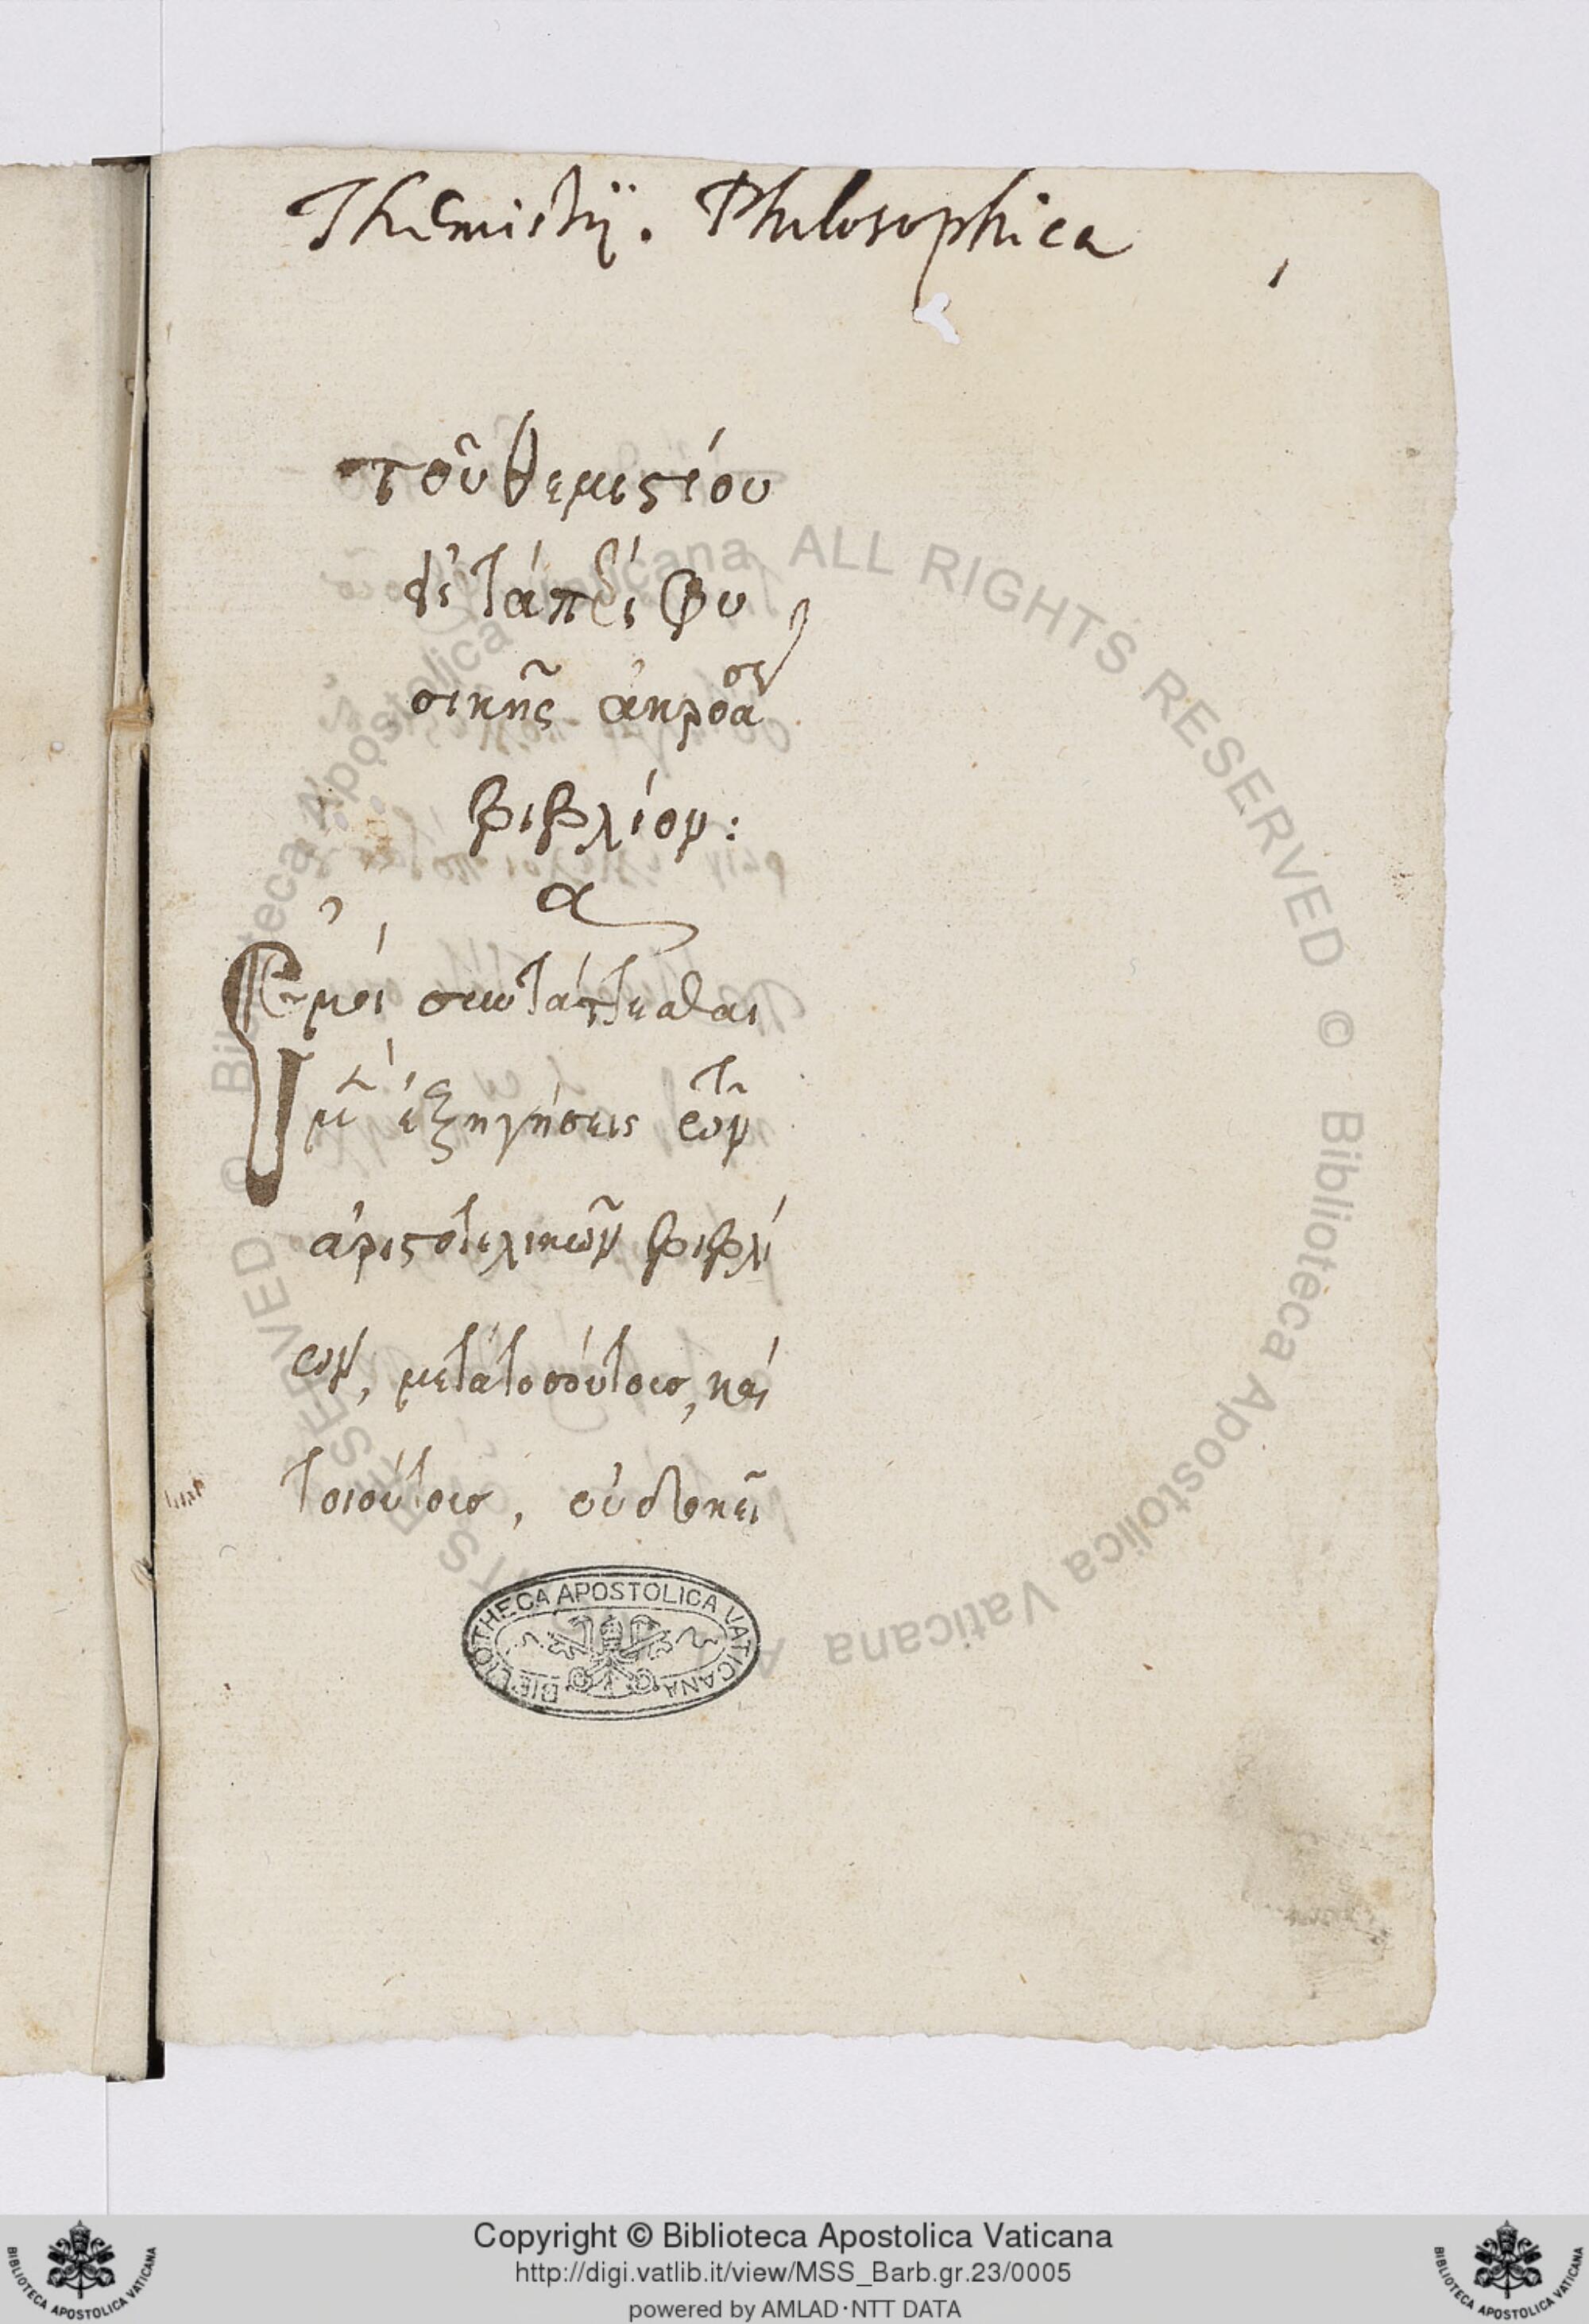 Themistij. Philosophica
τοῦ θεμιστίου
εἰς τὰ περὶ φυ
σικῆς ἀκροάσεως
βιβλίον:
α
Ἐμοὶ συντάττεσθαι
μὲν ἐξηγήσεις τῶν
ἀριστοτελικῶν βιβλί
ων, μετὰ τοσούτους, καὶ
τοιούτους, οὐ δοκεῖ
BIBLIOTHECA APOSTOLICA VATICANA
© Biblioteca Apostolica Vaticana ALL RIGHTS RESERVED © Biblioteca Apostolica Vaticana ALL RIGHTS RESERVED
Copyright © Biblioteca Apostolica Vaticana
http://digi.vatlib.it/view/MSS_Barb.gr.23/0005
powered by AMLAD·NTT DATA
BIBLIOTECA APOSTOLICA VATICANA
BIBLIOTECA APOSTOLICA VATICANA